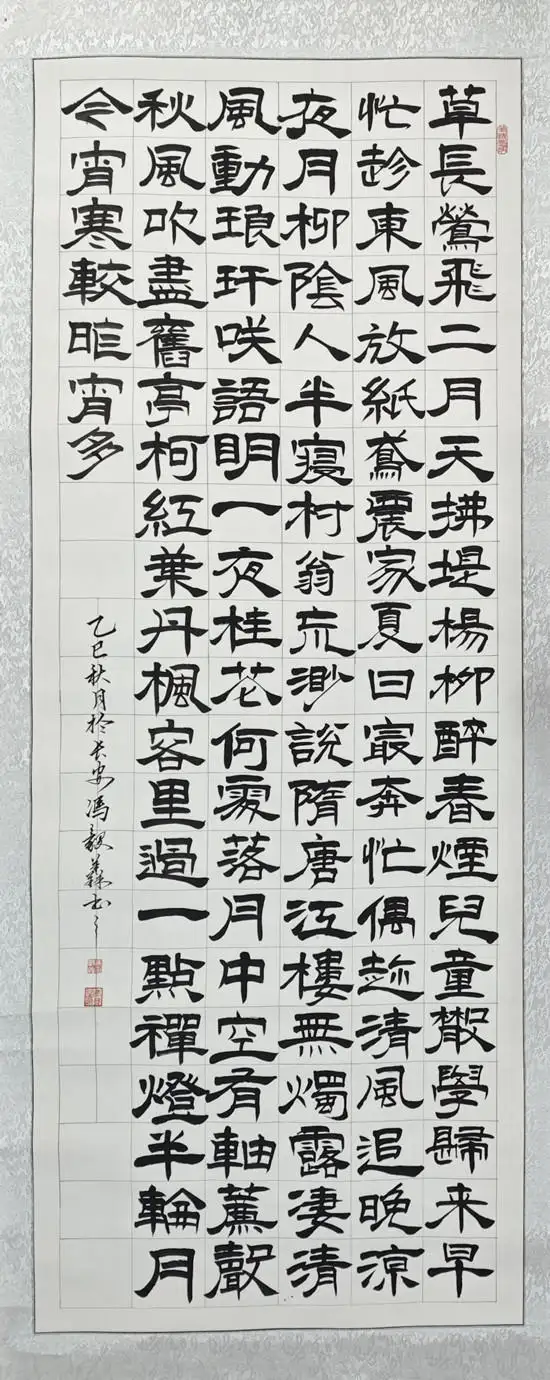 草長鶯飛二月天拂堤楊柳醉春煙兒童散學歸来早
忙趁東風放紙鳶農家夏日㝡奔忙偶趂清風追晚涼
夜月柳陰人半寢村翁荒渺說隋唐江樓無燭露凄清
風動琅玕咲語明一夜桂花何處落月中空有軸薰聲
秋風吹盡舊亭柯紅葉丹楓客里過一點禪燈半輪月
今宵寒較昨宵多
乙巳秋月於长安冯毅森书